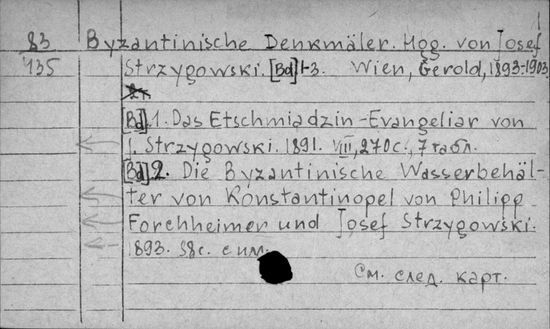 83 Byzantinische Denkmäler. Hog. von Josef
435 Strzygowski. [Bd] 1-3. Wien, Gerold, 1893-1903,
[Bd] 1. Das Etschmiadzin-Evangeliar von
J. Strzygowski. 1891. VIII, 270 с., 7 табл.
[Bd] 2. Die Byzantinische Wasserbehäl-
ter von Konstantinopel von Philipp
Forchheimer und Josef Strzygowski.
1893. 58 с. с илл.
См. след. карт.